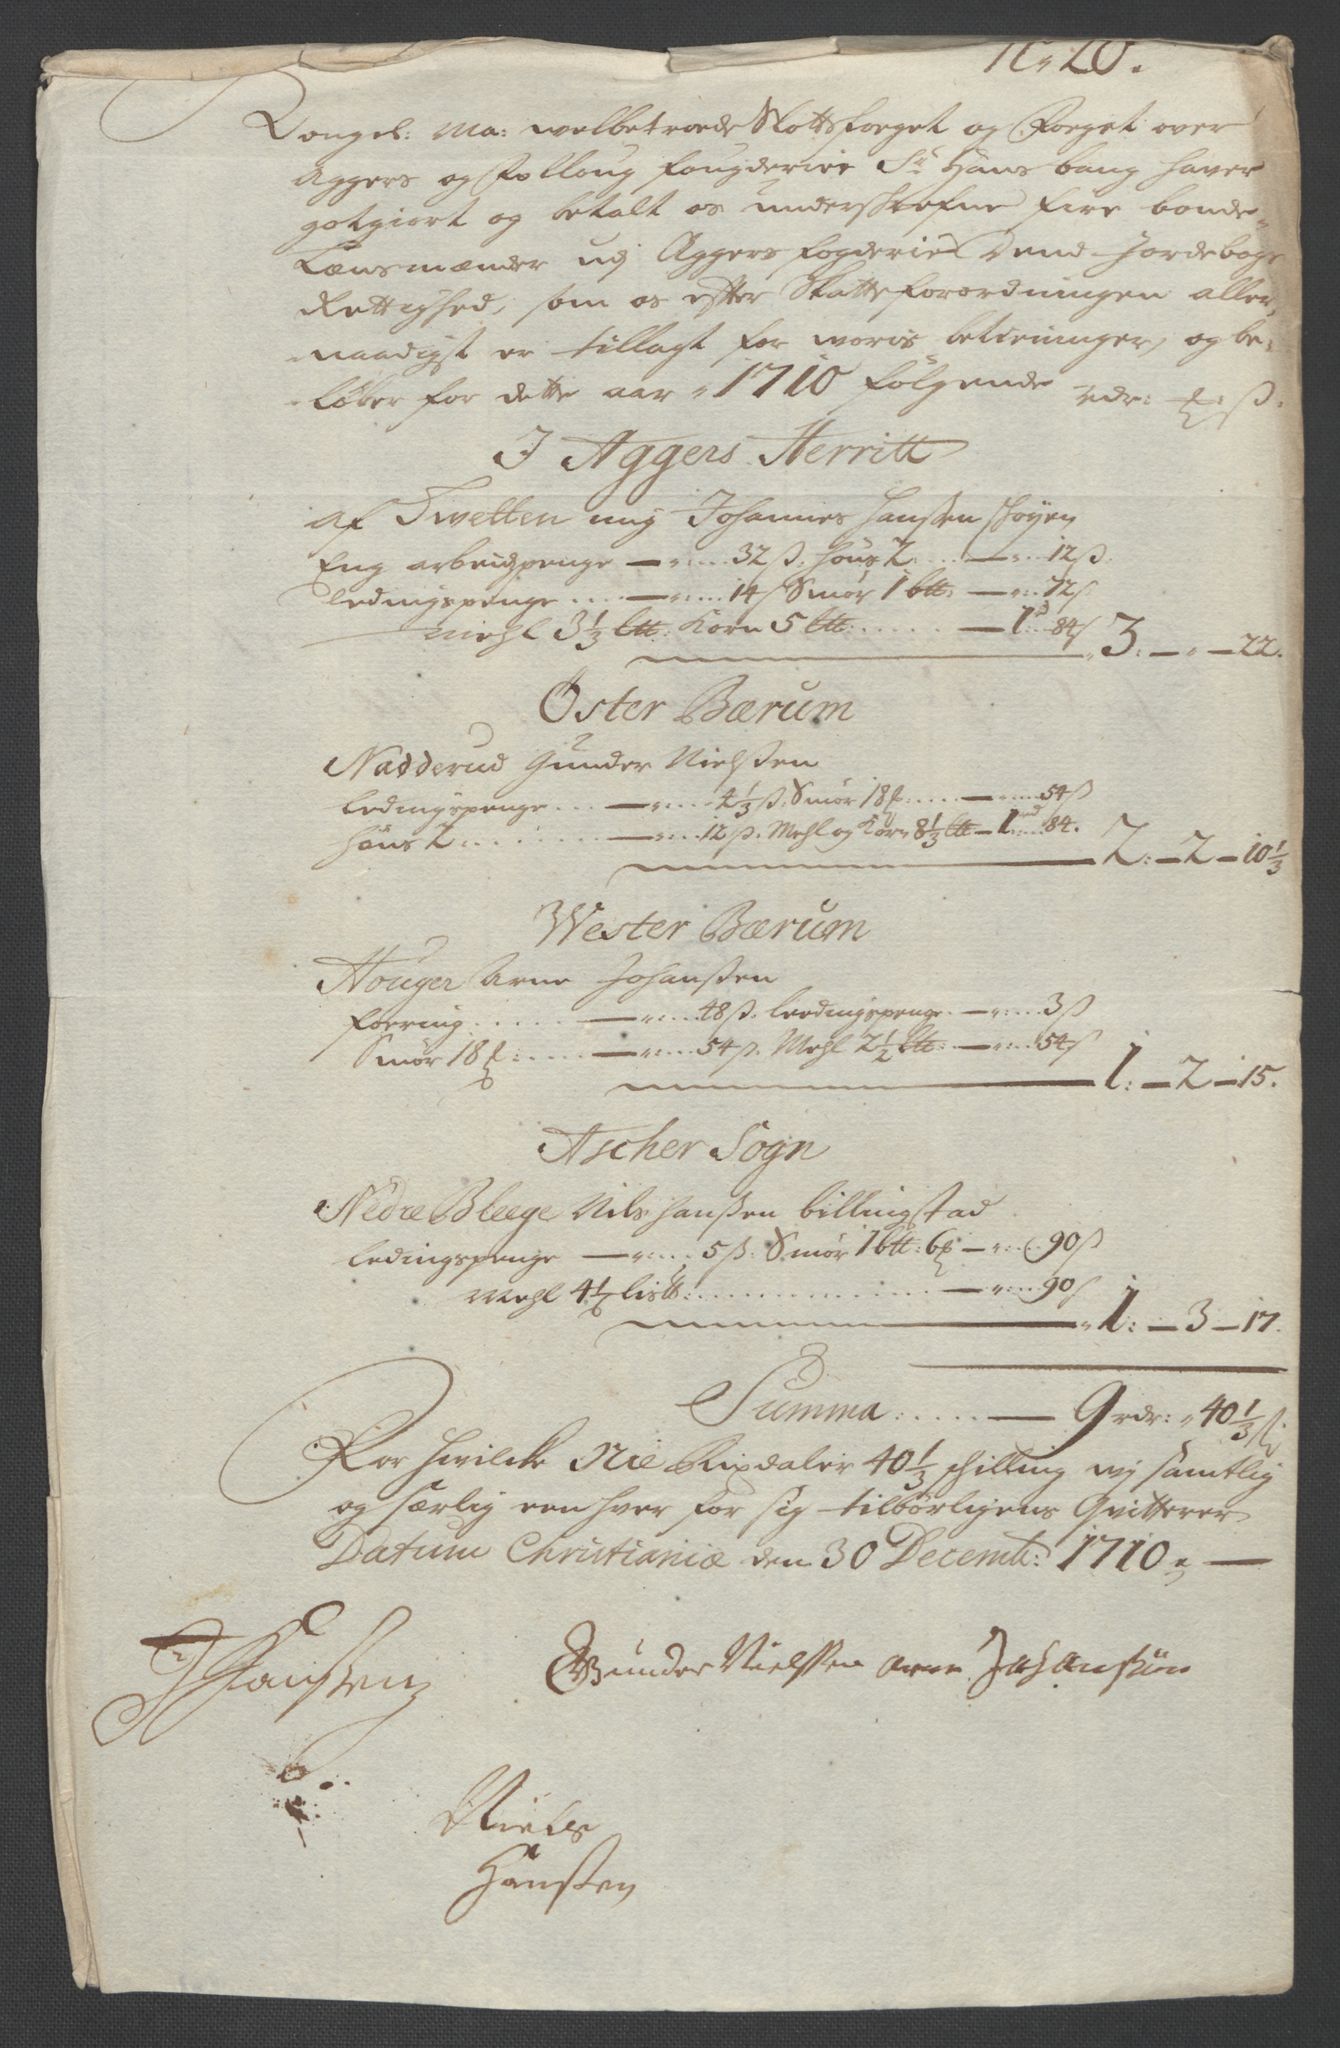 N. 20.
Kongel: Ma: welbetroede Slottsfoeget og Foeget over
Aggers og Folloug fougderier Sr Hans bang haver
gotgiort og betalt os underskrefne fire bonde-
Lænsmænder udj Aggers fogderie Dend Jordebogs
Rettighed, som os efter Skatteforordningen aller-
naadigst er tillagt for woris betieninger, og be-
løber for dette aar 1710 følgende rdr: ℔: ß.
I Aggers Herritt
af Twetten mig Johannes Hanßen Høyen
Eng arbeidspenge — 32 ß. høns 2 — 12 ß.
Ledingspenge — 14 ß Smør 1 btt: — 72 ß
Miehl 3 1/3 btt: Korn 5 btt: — 1 rd 84 ß 3: — 22.
Øster Bærum
Nadderud Gunder Nielßen
Ledingspenge — 4 1/3 ß. Smør 18 ℔: — 54 ß
høns 2 — 12 ß. Mehl og Korn 8 1/3 btt — 1 rd 84. 2: — 2 — 10 1/3
Wester Bærum
Houger Arne Johanßen
foering — 48 ß. Leedingspenge — 3 ß
Smør 18 ℔: — 54 ß. Mehl 2 1/2 btt: — 54 ß 1: — 2 — 15.
Ascher Sogn
Nedre Bleege Nils Hanßen billingstad
Ledingspenge — 5 ß: Smør 1 btt: 6 ℔ — 90 ß
Mehl 4 1/2 listt: — 90 ß 1: — 3 — 17.
Summa: — 9 rdr: 40 1/3 ß.
For hvilcke Nie Rixdaler 40 1/3 skilling wj samtlig
og særlig een hver for sig tilbørligens Qvitterer
Datum Christianiæ den 30 Decemb: 1710. —
J Hanßen
Gunder Nielssen Arne Johanßøn
Niels
Hanßen